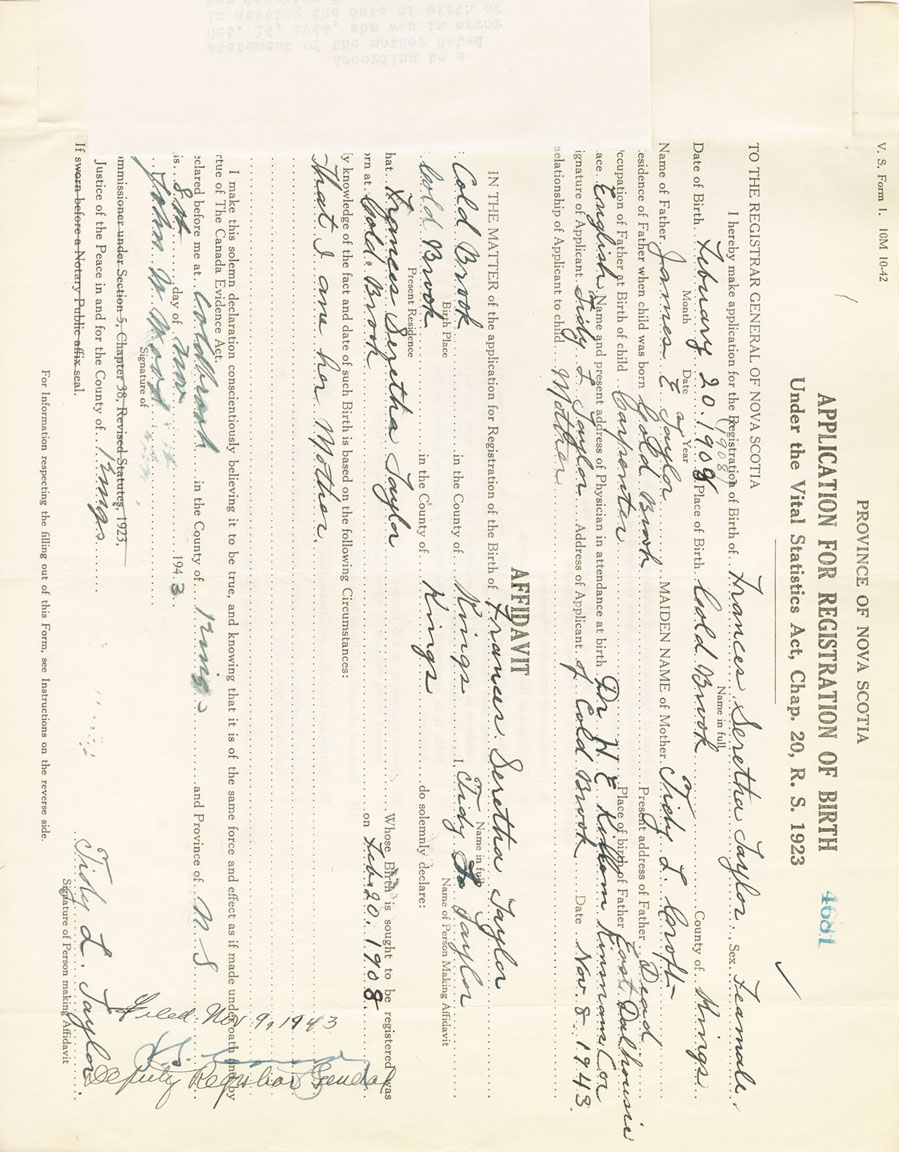 V. S. Form 1. 10M 10-42
PROVINCE OF NOVA SCOTIA
4681
APPLICATION FOR REGISTRATION OF BIRTH
Under the Vital Statistics Act, Chap. 20, R. S. 1923
TO THE REGISTRAR GENERAL OF NOVA SCOTIA
I hereby make application for the Registration of Birth of Frances Seretha Taylor Sex Feamale
(1908) Name in full
Date of Birth Febuary 20. 1908 Place of Birth Cold Brook County of Kings
Month Date Year
Name of Father James E Taylor MAIDEN NAME of Mother Tidy L. Croft
esidence of Father when child was born Cold Brook Present address of Father Dead
ccupation of Father at Birth of child Carpenter Place of birth of Father East Dalhousie
ace English Name and present address of Physician in attendance at birth Dr H E Killam Kinsmans Cor
ignature of Applicant Tidy L Taylor Address of Applicant Cold Brook Date Nov. 8 - 1943
elationship of Applicant to child Mother
AFFIDAVIT
IN THE MATTER of the application for Registration of the Birth of Frances Seretha Taylor
Name in full
Cold Brook in the County of Kings I, Tidy L Taylor
Birth Place Name of Person Making Affidavit
Cold Brook in the County of Kings do solemnly declare:
Present Residence
hat Frances Seretha Taylor Whose Birth is sought to be registered was
rn at Cold Brook on Feb 20. 1908.
y knowledge of the fact and date of such Birth is based on the following Circumstances:
That I am her Mother.
I make this solemn declaration conscientiously believing it to be true, and knowing that it is of the same force and effect as if made under oath and by
rtue of The Canada Evidence Act.
clared before me at Coldbrook in the County of Kings and Province of N S
is 8th day of Nov 1943.
John W Wood
Signature of
ommissioner under Section 5, Chapter 38, Revised Statutes, 1923,
Justice of the Peace in and for the County of Kings
If sworn before a Notary Public affix seal.
Filed. Nov 9, 1943
Deputy Registrar General
Tidy L. Taylor
Signature of Person making Affidavit
For Information respecting the filling out of this Form, see Instructions on the reverse side.
According to a
statement of the mother dated
Oct. 16, 1944, she was in error
in stating the date of birth of